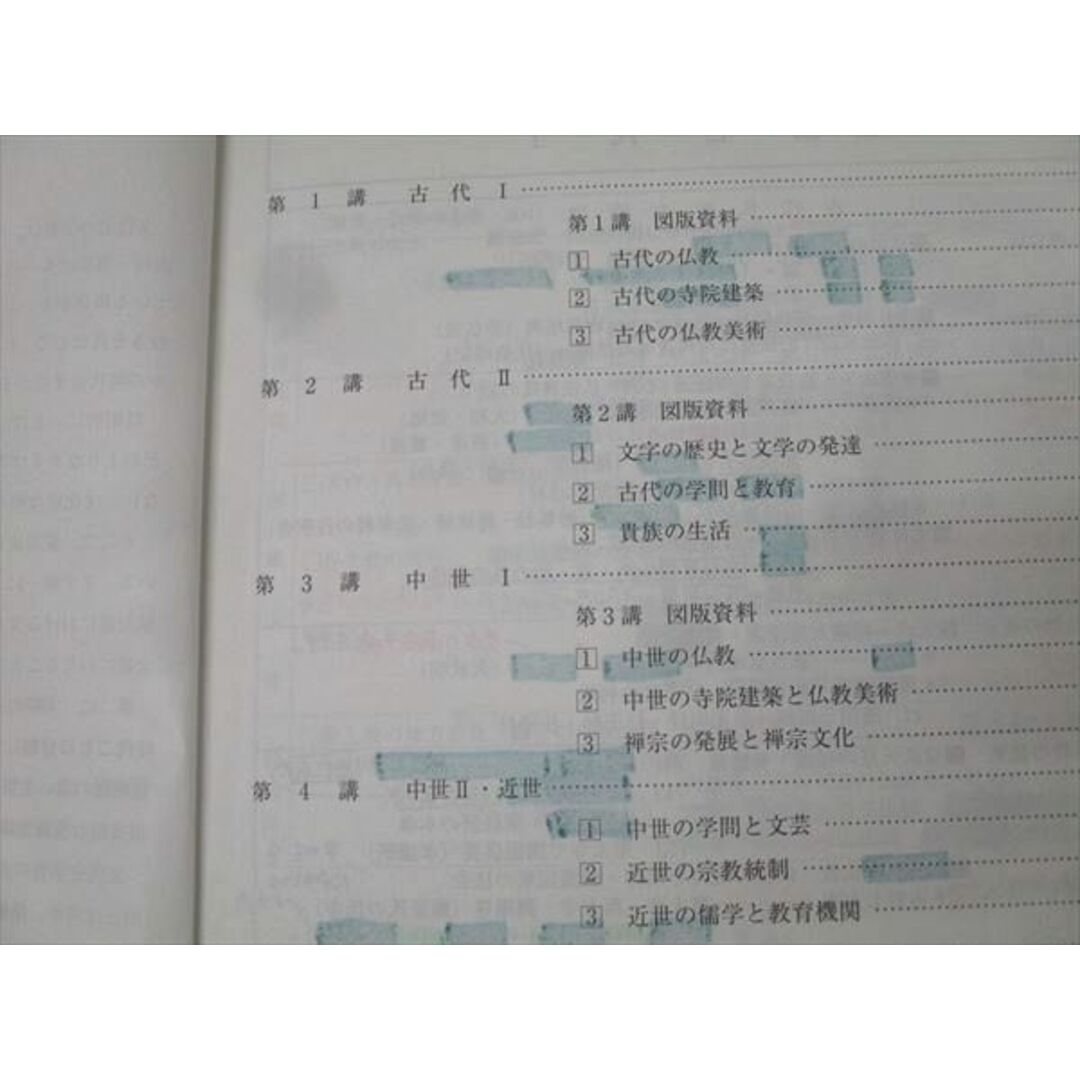 第1講 古代 Ⅰ
第1講 図版資料
1 古代の仏教
2 古代の寺院建築
3 古代の仏教美術
第2講 古代 Ⅱ
第2講 図版資料
1 文字の歴史と文学の発達
2 古代の学問と教育
3 貴族の生活
第3講 中世 Ⅰ
第3講 図版資料
1 中世の仏教
2 中世の寺院建築と仏教美術
3 禅宗の発展と禅宗文化
第4講 中世Ⅱ・近世
1 中世の学問と文芸
2 近世の宗教統制
3 近世の儒学と教育機関